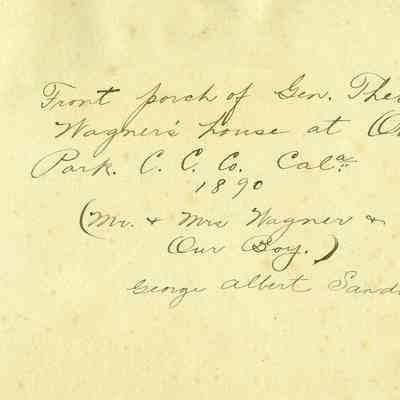 Front porch of Gen. Theo
Wagner's house at
Park. C. C. Co. Cala.
1890
(Mr. & Mrs Wagner &
Our Boy.)
George Albert